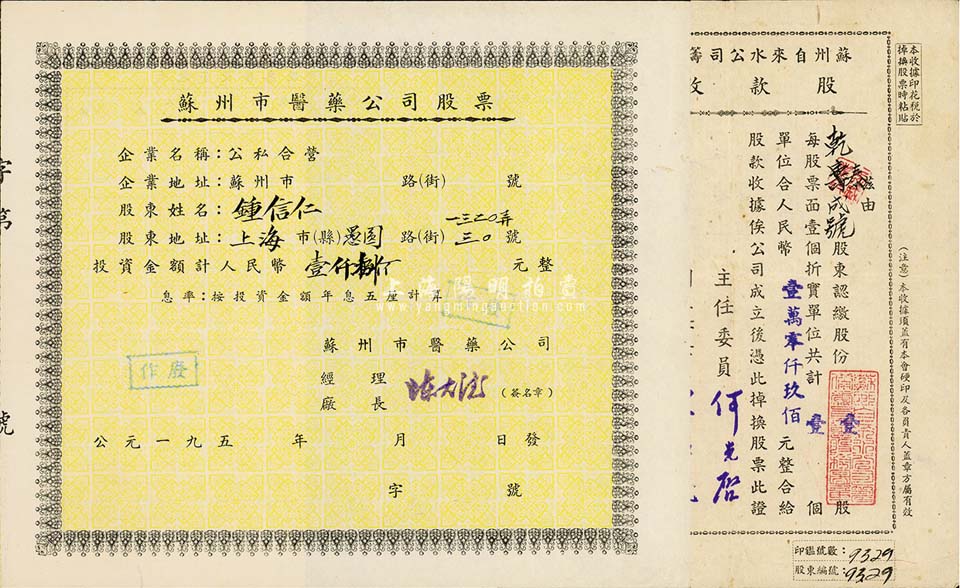 蘇州市醫藥公司股票
企業名稱：公私合營
企業地址：蘇州市 路(街) 號
股東姓名：鍾信仁
一三二〇弄
股東地址：上海市(縣)愚園路(街)三〇號
投資金額計人民幣壹仟捌佰元整
息率：按投資金額年息五厘計算
上海陽明拍賣
www.yangmingauction.com
蘇州市醫藥公司
經理
廠長
(簽名章)
作廢
公元一九五 年 月 日發
字 號
字第
號
蘇州自來水公司籌
股款收
本收據印花稅於
掉換股票時粘貼
由
乾 成號股東認繳股份壹股
每股票面壹個折實單位共計壹個
單位合人民幣壹萬零仟玖佰元整合給
股款收據俟公司成立後憑此掉換股票此證
主任委員 何克
(注意)本收據須蓋有本會硬印及各員責人蓋章方屬有效
印鑑號數：9329
股東編號：9329